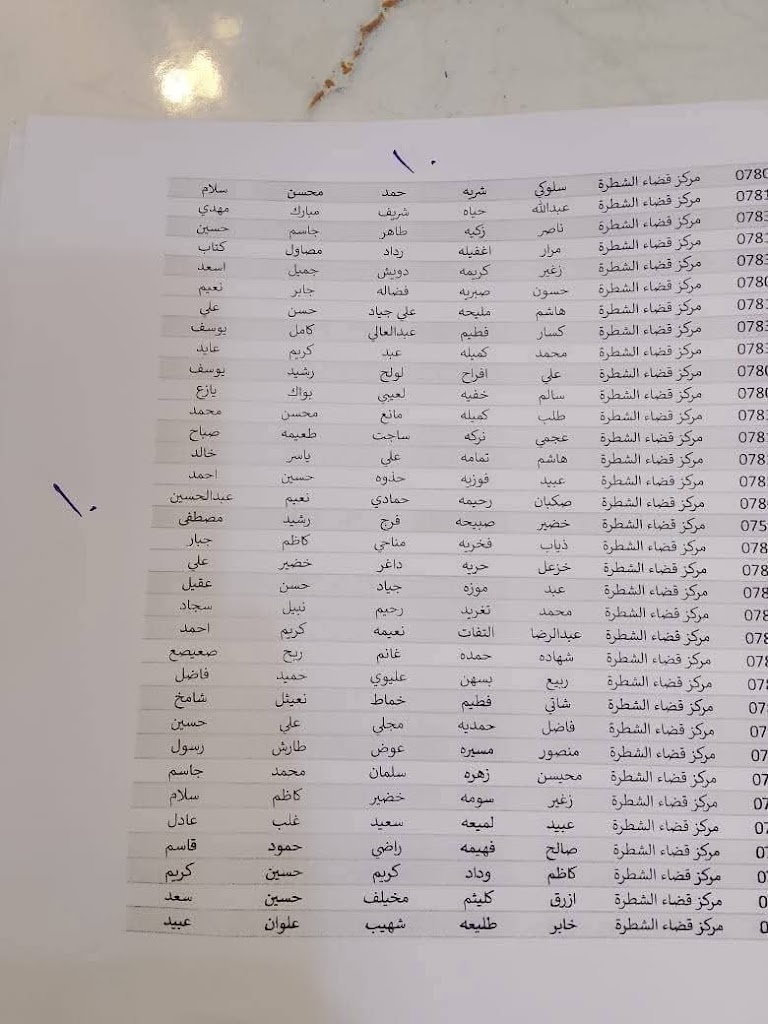 ١٠
0780 مركز قضاء الشطرة سلوكي شريه حمد محسن سلام
0781 مركز قضاء الشطرة عبدالله حياه شريف مبارك مهدي
0783 مركز قضاء الشطرة ناصر زكيه طاهر جاسم حسين
0781 مركز قضاء الشطرة مرار اغفيله رداد مصاول كتاب
0783 مركز قضاء الشطرة زغير كريمه دويش جميل اسعد
0780 مركز قضاء الشطرة حسون صبريه فضاله جابر نعيم
0781 مركز قضاء الشطرة هاشم مليحه علي جياد حسن علي
0783 مركز قضاء الشطرة كسار فطيم عبدالعالي كامل يوسف
0783 مركز قضاء الشطرة محمد كميله عبد كريم عايد
0780 مركز قضاء الشطرة علي افراح لولح رشيد يوسف
0780 مركز قضاء الشطرة سالم خفيه لعيبي بواك يازع
078 مركز قضاء الشطرة طلب كميله مانع محسن محمد
078 مركز قضاء الشطرة عجمي نركه ساجت طعيمه صباح
078 مركز قضاء الشطرة هاشم تمامه علي ياسر خالد
078 مركز قضاء الشطرة عبيد فوزيه حذوه حسين احمد
078 مركز قضاء الشطرة صكبان رحيمه حمادي نعيم عبدالحسين
١٠
075 مركز قضاء الشطرة خضير صبيحه فرج رشيد مصطفى
078 مركز قضاء الشطرة ذياب فخريه مناحي كاظم جبار
078 مركز قضاء الشطرة خزعل حربه داغر خضير علي
078 مركز قضاء الشطرة عبد موزه جياد حسن عقيل
078 مركز قضاء الشطرة محمد تغريد رحيم نبيل سجاد
078 مركز قضاء الشطرة عبدالرضا التفات نعيمه كريم احمد
078 مركز قضاء الشطرة شهاده حمده غانم ربح صعيصع
078 مركز قضاء الشطرة ربيع بسهن عليوي حميد فاضل
07 مركز قضاء الشطرة شاتي فطيم خماط نعيثل شامخ
07 مركز قضاء الشطرة فاضل حمديه مجلي علي حسين
07 مركز قضاء الشطرة منصور مسيره عوض طارش رسول
07 مركز قضاء الشطرة محيسن زهره سلمان محمد جاسم
07 مركز قضاء الشطرة زغير سومه خضير كاظم سلام
07 مركز قضاء الشطرة عبيد لميعه سعيد غلب عادل
07 مركز قضاء الشطرة صالح فهيمه راضي حمود قاسم
0 مركز قضاء الشطرة كاظم وداد كريم حسين كريم
0 مركز قضاء الشطرة ازرق كليثم مخيلف حسين سعد
0 مركز قضاء الشطرة خابر طليعه شهيب علوان عبيد